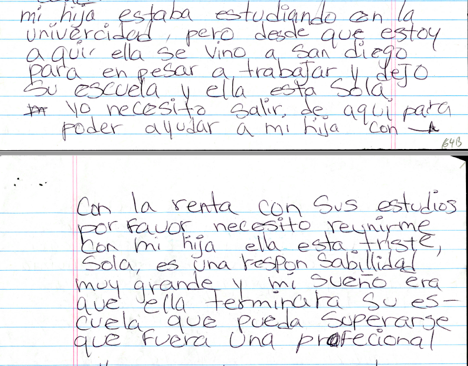 mi hija estaba estudiando en la
univercidad, pero desde que estoy
aqui ella se vino a san diego
para enpesar a trabajar y dejo
su escuela y ella esta sola
yo necesito salir de aqui para
poder ayudar a mi hija con
64B
Con la renta con sus estudios
por favor necesito reynirme
con mi hija ella esta triste,
Sola, es una responsabillidad
muy grande y mi sueño era
que ella terminara su es-
cuela que pueda superarse
que fuera una profecional